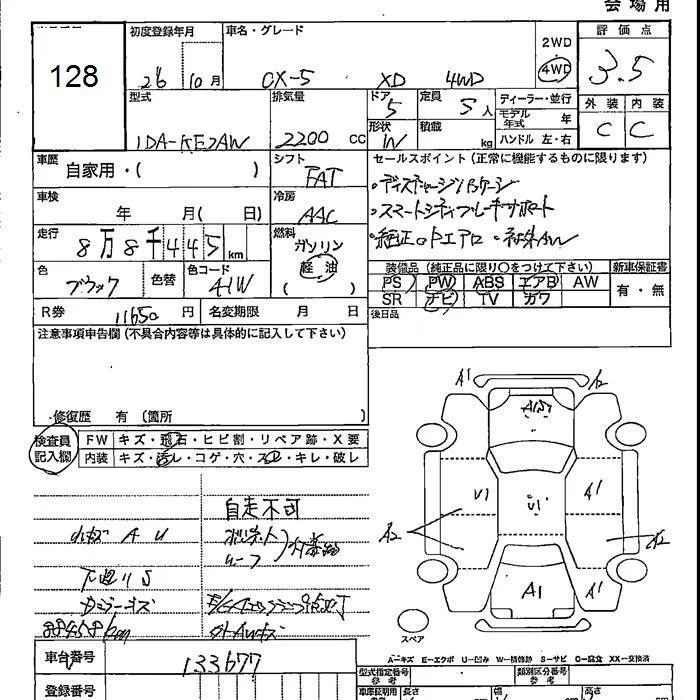 会場用
128
初度登録年月
26 10月
車名・グレード
CX-5 XD 4WD
2WD
4WD
評価点
3.5
外装 内装
C C
型式
LDA-KE2AW
排気量
2200 cc
ドア
5
形状
W
定員
5人
積載
kg
ディーラー・並行
モデル年式 年
ハンドル 左・右
車歴
自家用・( )
シフト
FAT
セールスポイント(正常に機能するものに限ります)
・ディスチャージパッケージ
・スマートシティブレーキサポート
・純正 エアロ ・ AW
車検
年 月( 日)
冷房
AAC
走行
8万8千445km
燃料
ガソリン
軽油
( )
色
ブラック
色替
色コード
41W
装備品(純正品に限り○をつけて下さい)
PS PW ABS エアB AW
SR ナビ TV カワ
新車保証書
有・無
R券
11650円
名変期限 月 日
後日品
注意事項申告欄(不具合内容等は具体的に記入して下さい)
修復歴 有(箇所
検査員記入欄
FW キズ・飛石・ヒビ割・リペア跡・X要
内装 キズ・汚レ・コゲ・穴・スレ・キレ・破レ
自走不可
小キズ A U
ボンネット
ルーフ
下廻りS
ミラーキズ
E/Gチェックランプ点灯
88458km
A1
A1
U1
U1
A1
A2
A2
A1
A1
スペア
A-キズ E-エクボ U-凹み W-補修跡 S-サビ C-腐食 XX-交換済
車台番号
133677
登録番号
型式指定番号
参考
類別区分番号
参考
車庫証明用
長さ
高さ